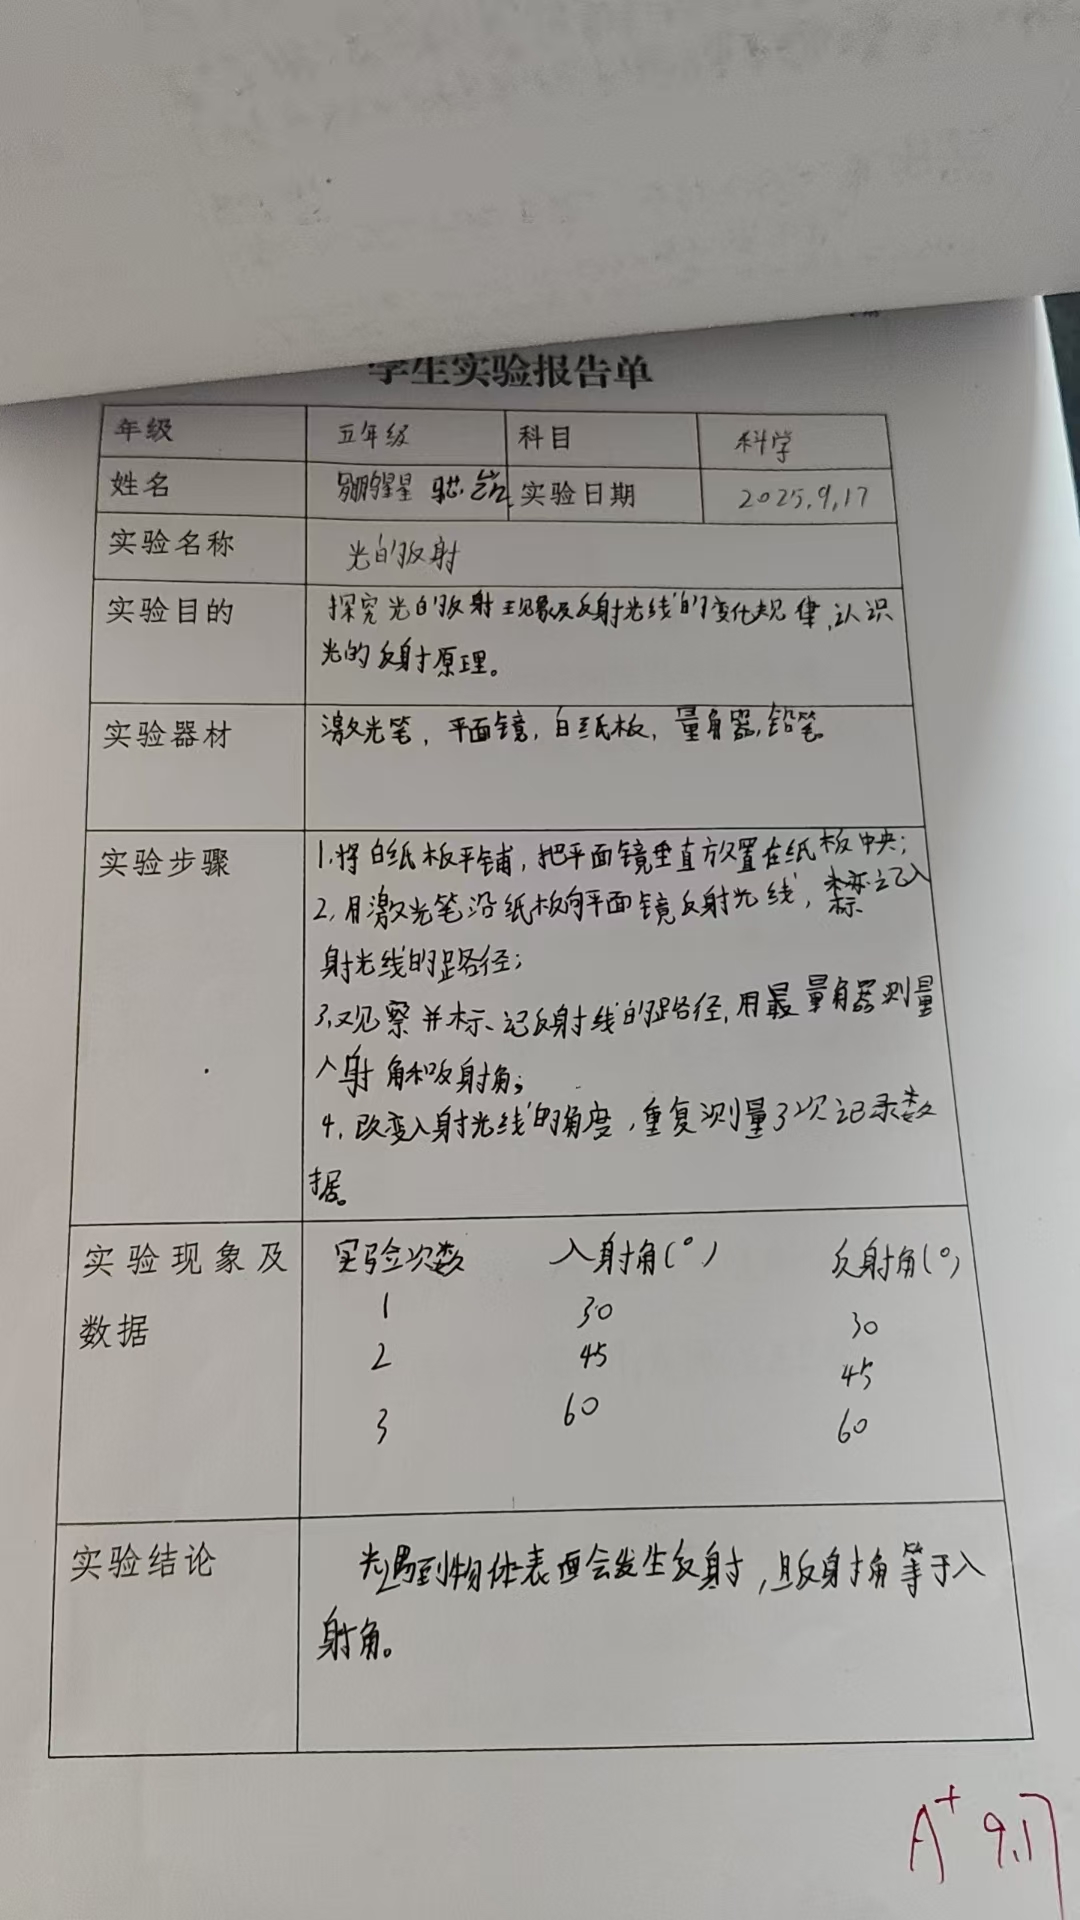 学生实验报告单
年级 五年级 科目 科学
姓名 实验日期 2025.9.17
实验名称 光的反射
实验目的 探究光的反射现象及反射光线的变化规律,认识
光的反射原理。
实验器材 激光笔,平面镜,白纸板,量角器,铅笔。
实验步骤 1.将白纸板平铺,把平面镜垂直放置在纸板中央;
2,用激光笔沿纸板向平面镜反射光线,标记入
射光线的路径;
3.观察并标记反射线的路径,用最量角器测量
入射角和反射角;
4.改变入射光线的角度,重复测量3次记录数
据。
实验现象及 实验次数 入射角(°) 反射角(°)
数据 1 30 30
2 45 45
3 60 60
实验结论 光遇到物体表面会发生反射,且反射角等于入
射角。
A+ 9.17